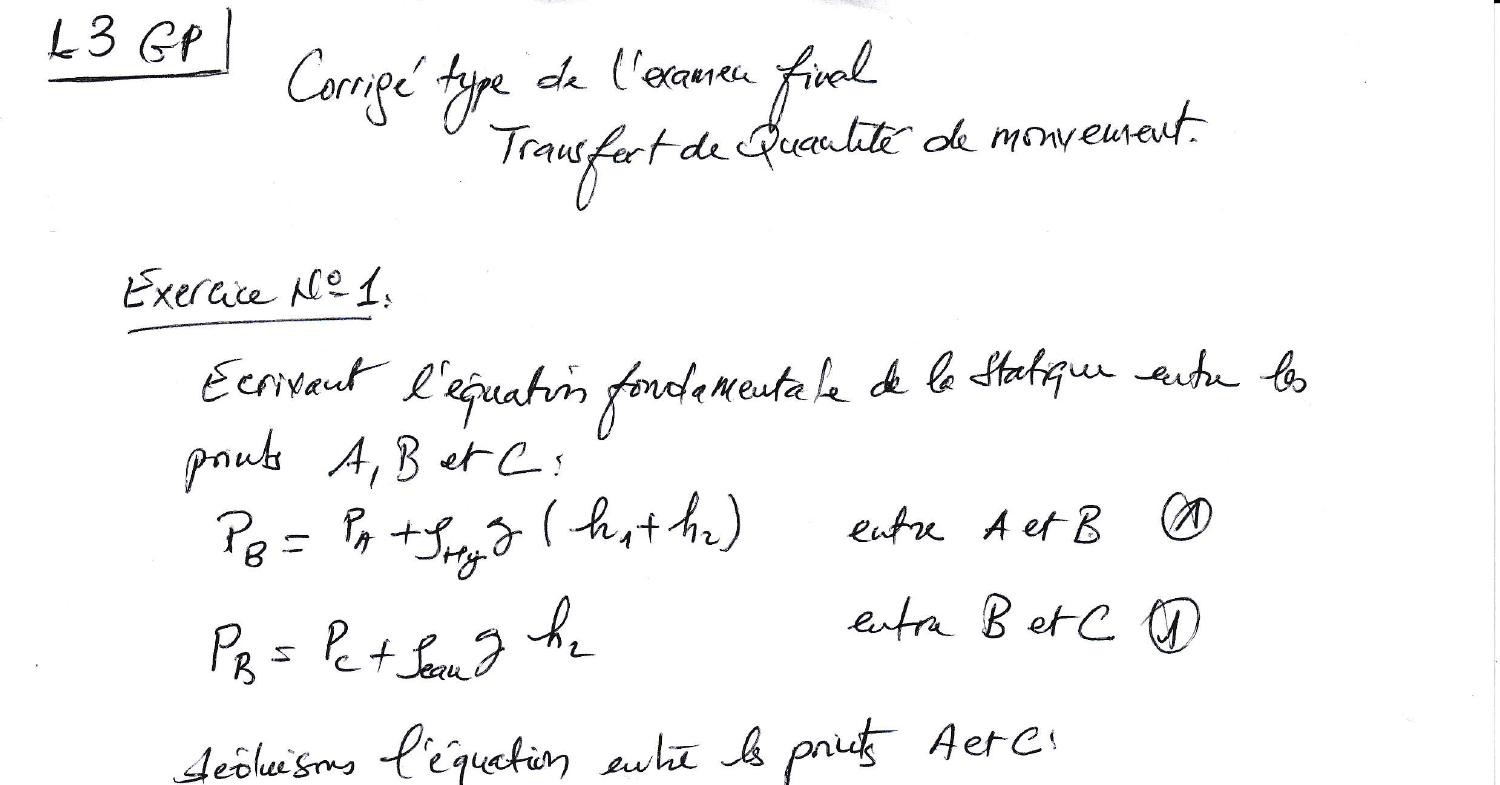 L3 GP
Corrigé type de l'examen final
Transfert de Quantité de mouvement.
Exercice N° 1:
Ecrivant l'équation fondamentale de la statique entre les
points A, B et C:
P_B = P_A + ρ_Hg g (h_1 + h_2) entre A et B ①
P_B = P_C + ρ_eau g h_2 entre B et C ①
déduisons l'équation entre les points A et C: